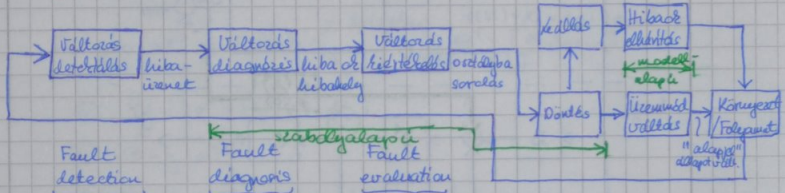 Változás
detektálás
hiba-
üzenet
Változás
diagnózis
hiba ok
hibahely
Változás
kiértékelés
osztályba
sorolás
Kezelés
Hibaok
elhárítás
modell
alapú
Döntés
Üzemmód
váltás
Környezet
/Folyamat
"alapjel"
szabályalapú
Fault
detection
Fault
diagnosis
Fault
evaluation